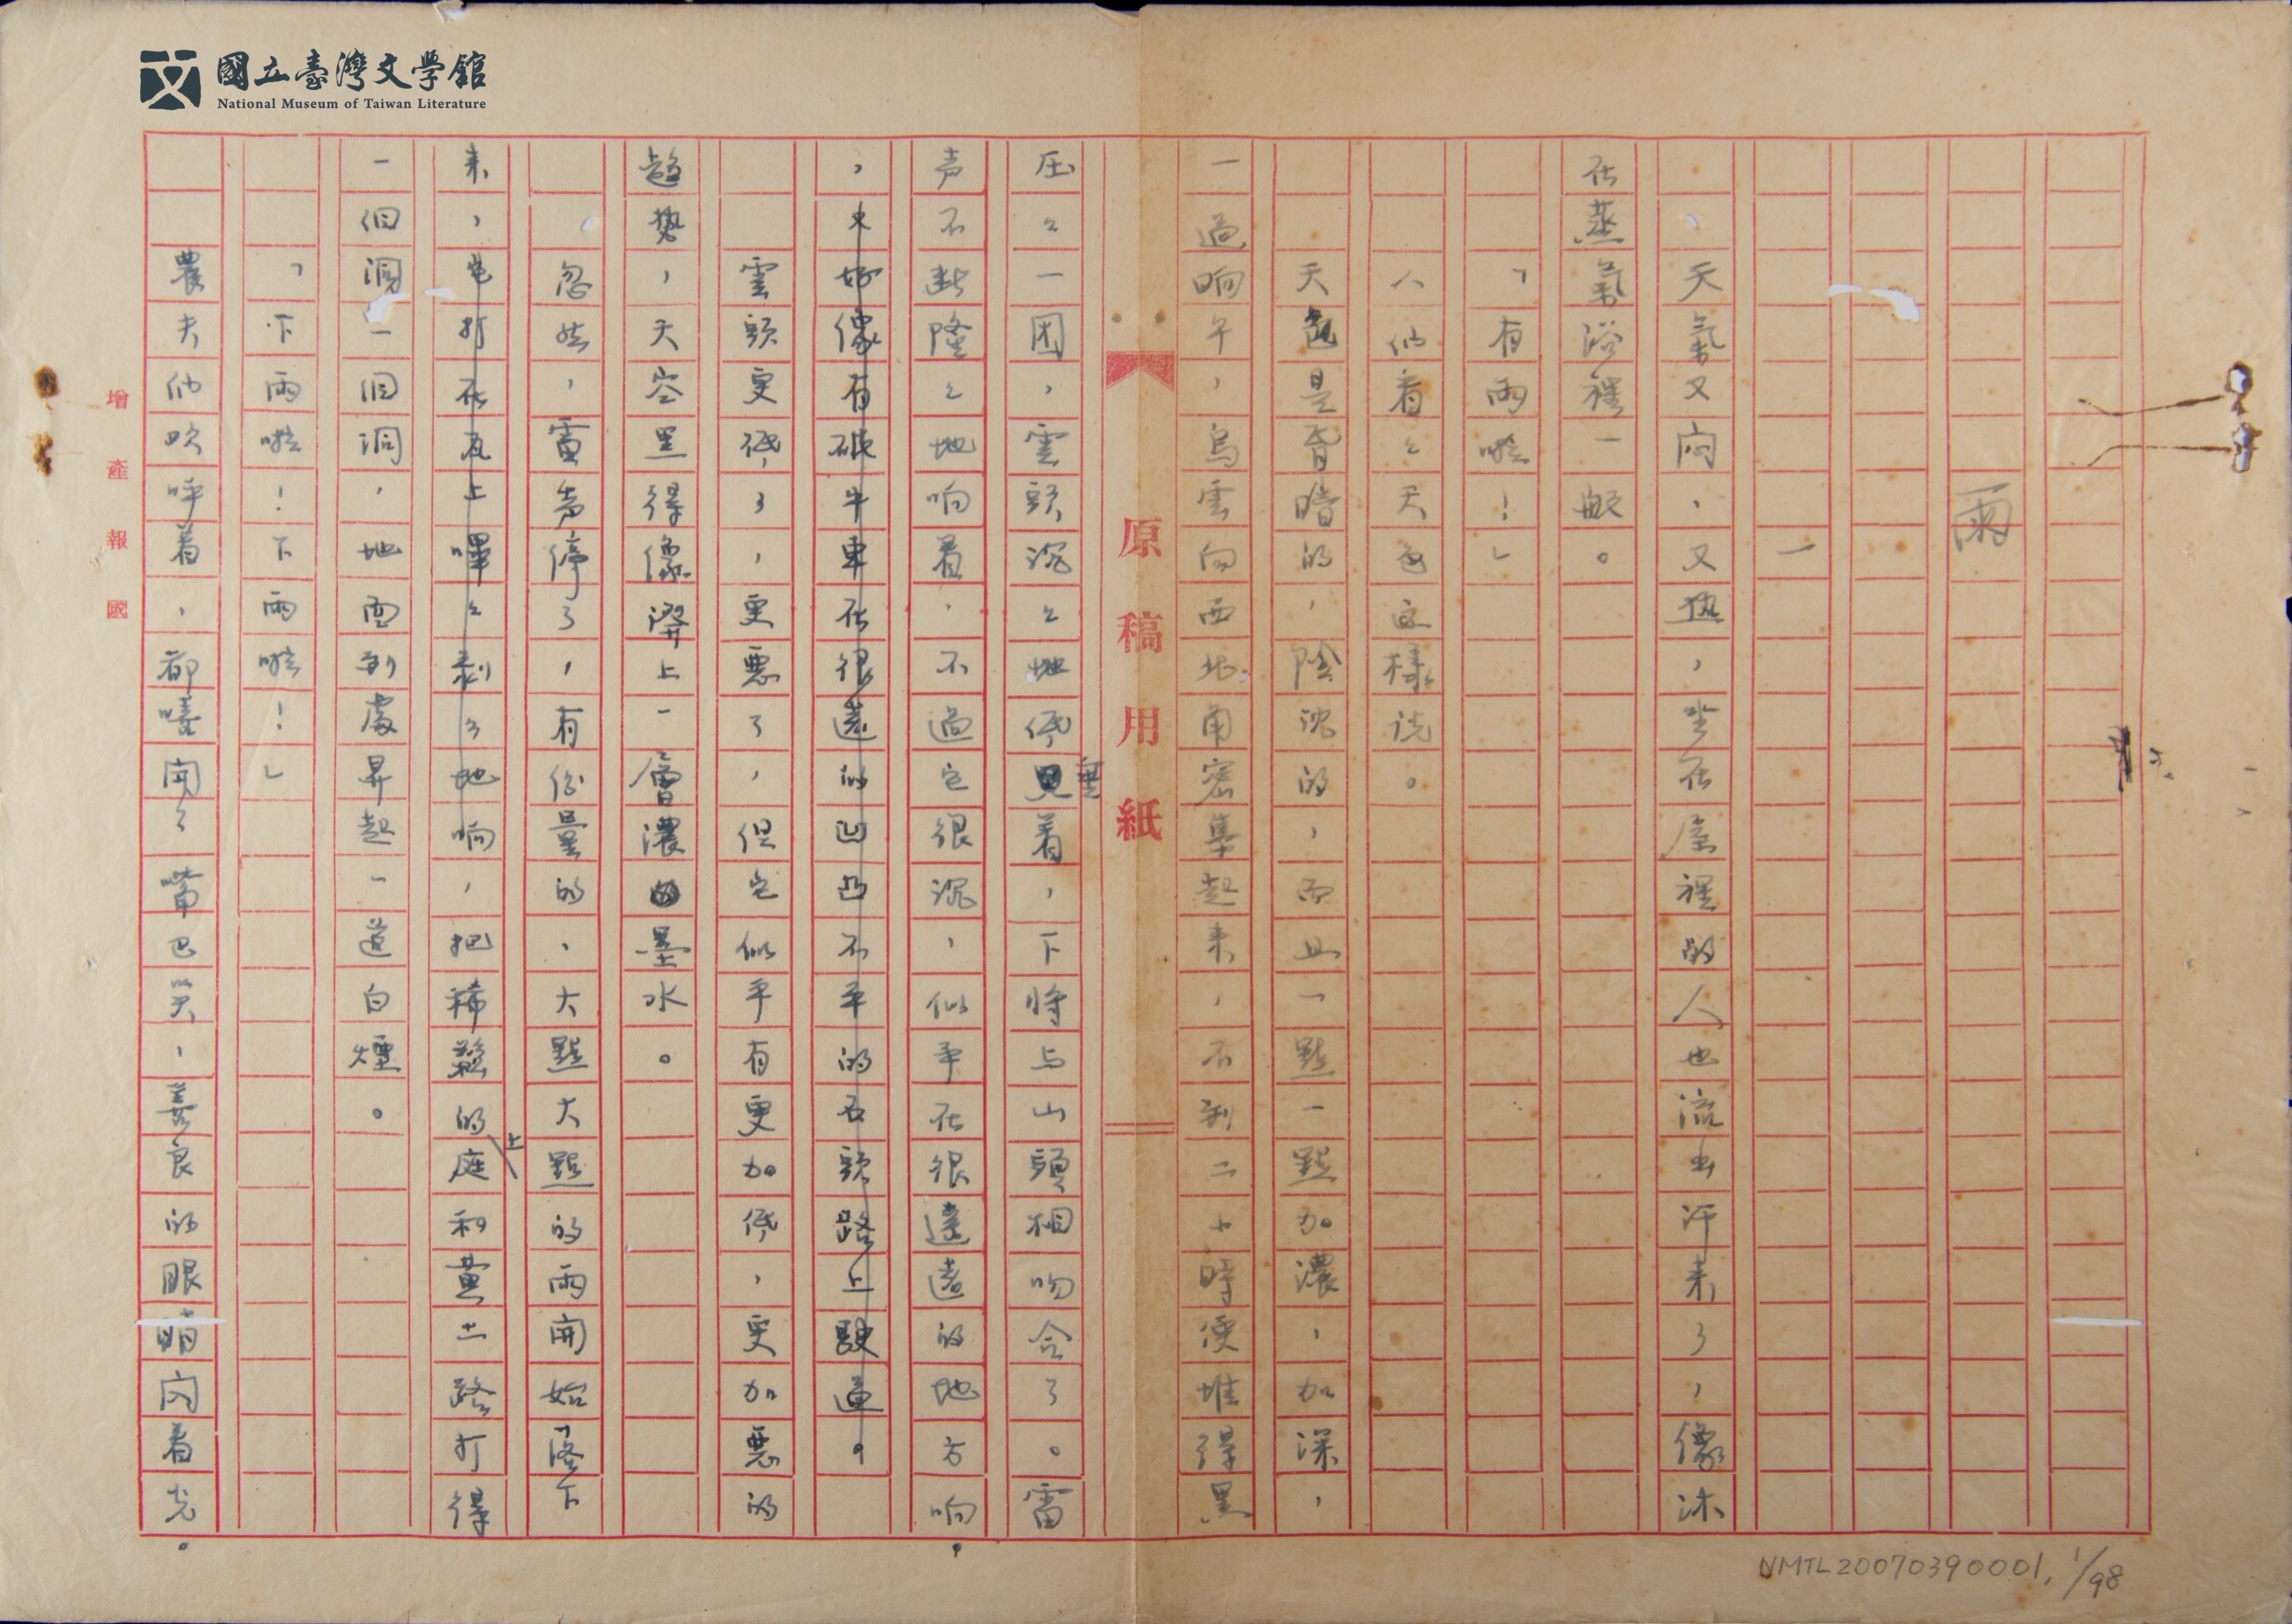 國立臺灣文學館
National Museum of Taiwan Literature
雨
一
天氣又闷，又热，坐在屋裡的人也流出汗来了，像沐
在蒸氣浴裡一般。
「有雨啦！」
人们看々天色这樣说。
天色是昏暗的，陰沈的，而且一點一點加濃，加深，
一過晌午，烏雲向西北角密集起来，不到二小時便堆得黑
原稿用紙
压々一团，雲頭沉々地低垂着，下將与山頭相吻合了。雷
声不断隆々地响着，不過它很沉，似乎在很遠遠的地方响。
，又好像有破牛車在很遠的凹凸不平的石頭路上駛過。
雲頭更低了，更惡了，但它似乎有更加低，更加惡的
趋势，天空黑得像潑上一層濃的墨水。
忽然，雷声停了，有份量的，大點大點的雨開始落下
来，它打在瓦上嗶々剥々地响，把稀鬆的庭上和黄土路打得
一個洞一個洞，地面到處昇起一道白煙。
「下雨啦！下雨啦！」
農夫们欢呼着，都嘻開了嘴巴笑，善良的眼睛闪着光。
增產報國
NMTL20070390001, 1/98